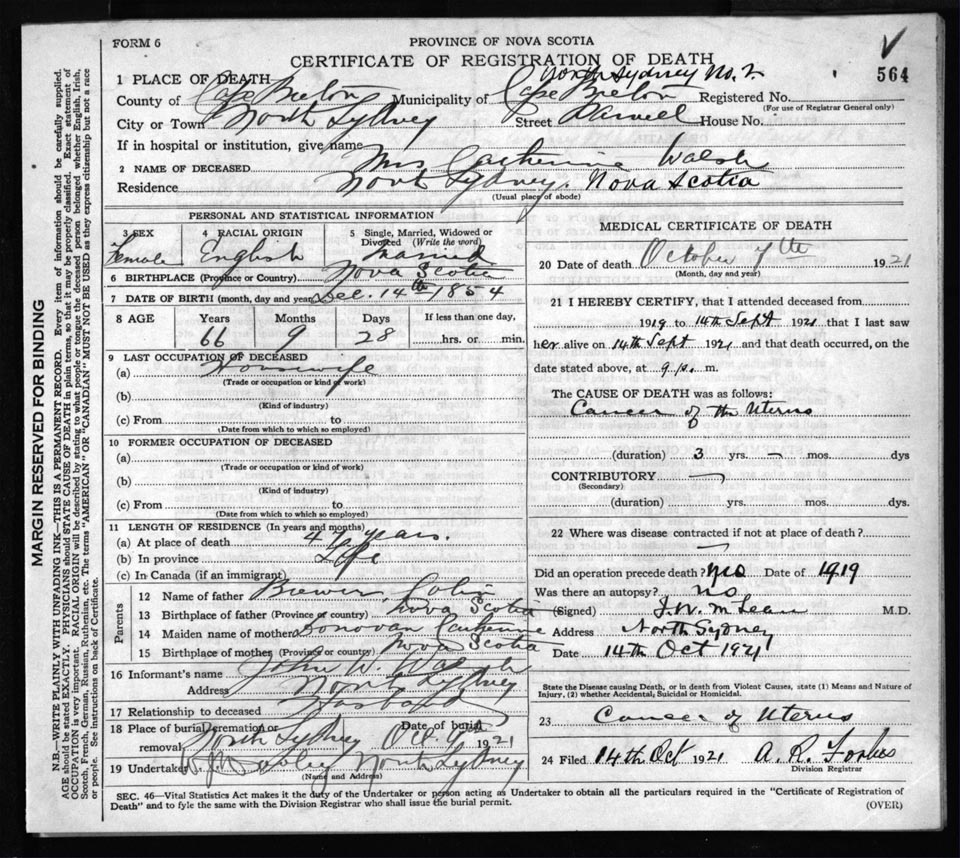 FORM 6
PROVINCE OF NOVA SCOTIA
CERTIFICATE OF REGISTRATION OF DEATH
564
1 PLACE OF DEATH North Sydney No. 2
County of Cape Breton Municipality of Cape Breton Registered No.
(For use of Registrar General only)
City or Town North Sydney Street House No.
If in hospital or institution, give name
2 NAME OF DECEASED Mrs Catherine Walsh
Residence North Sydney. Nova Scotia
(Usual place of abode)
PERSONAL AND STATISTICAL INFORMATION
3 SEX Female
4 RACIAL ORIGIN English
5 Single, Married, Widowed or Divorced (Write the word) Married
6 BIRTHPLACE (Province or Country) Nova Scotia
7 DATE OF BIRTH (month, day and year) Dec. 14th 1854
8 AGE Years Months Days If less than one day,
66 9 28 hrs. or min.
9 LAST OCCUPATION OF DECEASED
(a) Housewife
(Trade or occupation or kind of work)
(b)
(Kind of industry)
(c) From to
(Date from which to which so employed)
10 FORMER OCCUPATION OF DECEASED
(a)
(Trade or occupation or kind of work)
(b)
(Kind of industry)
(c) From to
(Date from which to which so employed)
11 LENGTH OF RESIDENCE (In years and months)
(a) At place of death years.
(b) In province Life
(c) In Canada (if an immigrant)
Parents
12 Name of father Brewer, Colin
13 Birthplace of father (Province or country) Nova Scotia
14 Maiden name of mother Donovan Catherine
15 Birthplace of mother (Province or country) Nova Scotia
16 Informant's name John W. Walsh
Address North Sydney
17 Relationship to deceased Husband
18 Place of burial, cremation or removal North Sydney Date of burial Oct. 1921
19 Undertaker North Sydney
(Name and Address)
MEDICAL CERTIFICATE OF DEATH
20 Date of death October 7th 1921
(Month, day and year)
21 I HEREBY CERTIFY, that I attended deceased from
1919 to 14th Sept 1921 that I last saw
her alive on 14th Sept 1921 and that death occurred, on the
date stated above, at 9 p. m.
The CAUSE OF DEATH was as follows:
Cancer of the Uterus
(duration) 3 yrs. – mos. dys
CONTRIBUTORY
(Secondary)
(duration) yrs. mos. dys.
22 Where was disease contracted if not at place of death?
Did an operation precede death? Yes Date of 1919
Was there an autopsy? No
(Signed) J. W. McLean M.D.
Address North Sydney
Date 14th Oct 1921
State the Disease causing Death, or in death from Violent Causes, state (1) Means and Nature of
Injury, (2) whether Accidental, Suicidal or Homicidal.
23 Cancer of Uterus
24 Filed 14th Oct 1921 A. R. Forbes
Division Registrar
SEC. 46—Vital Statistics Act makes it the duty of the Undertaker or person acting as Undertaker to obtain all the particulars required in the "Certificate of Registration of
Death" and to fyle the same with the Division Registrar who shall issue the burial permit.
(OVER)
MARGIN RESERVED FOR BINDING
N.B.—WRITE PLAINLY WITH UNFADING INK—THIS IS A PERMANENT RECORD. Every item of information should be carefully supplied.
AGE should be stated EXACTLY. PHYSICIANS should STATE CAUSE OF DEATH in plain terms, so that it may be properly classified. Exact statement of
OCCUPATION is very important. RACIAL ORIGIN will be described by stating to what people or tongue the deceased person belonged whether English, Irish,
Scotch, French, German, Russian, Ruthenian, etc. The terms "AMERICAN" OR "CANADIAN" MUST NOT BE USED as they express citizenship but not a race
or people. See instructions on back of Certificate.